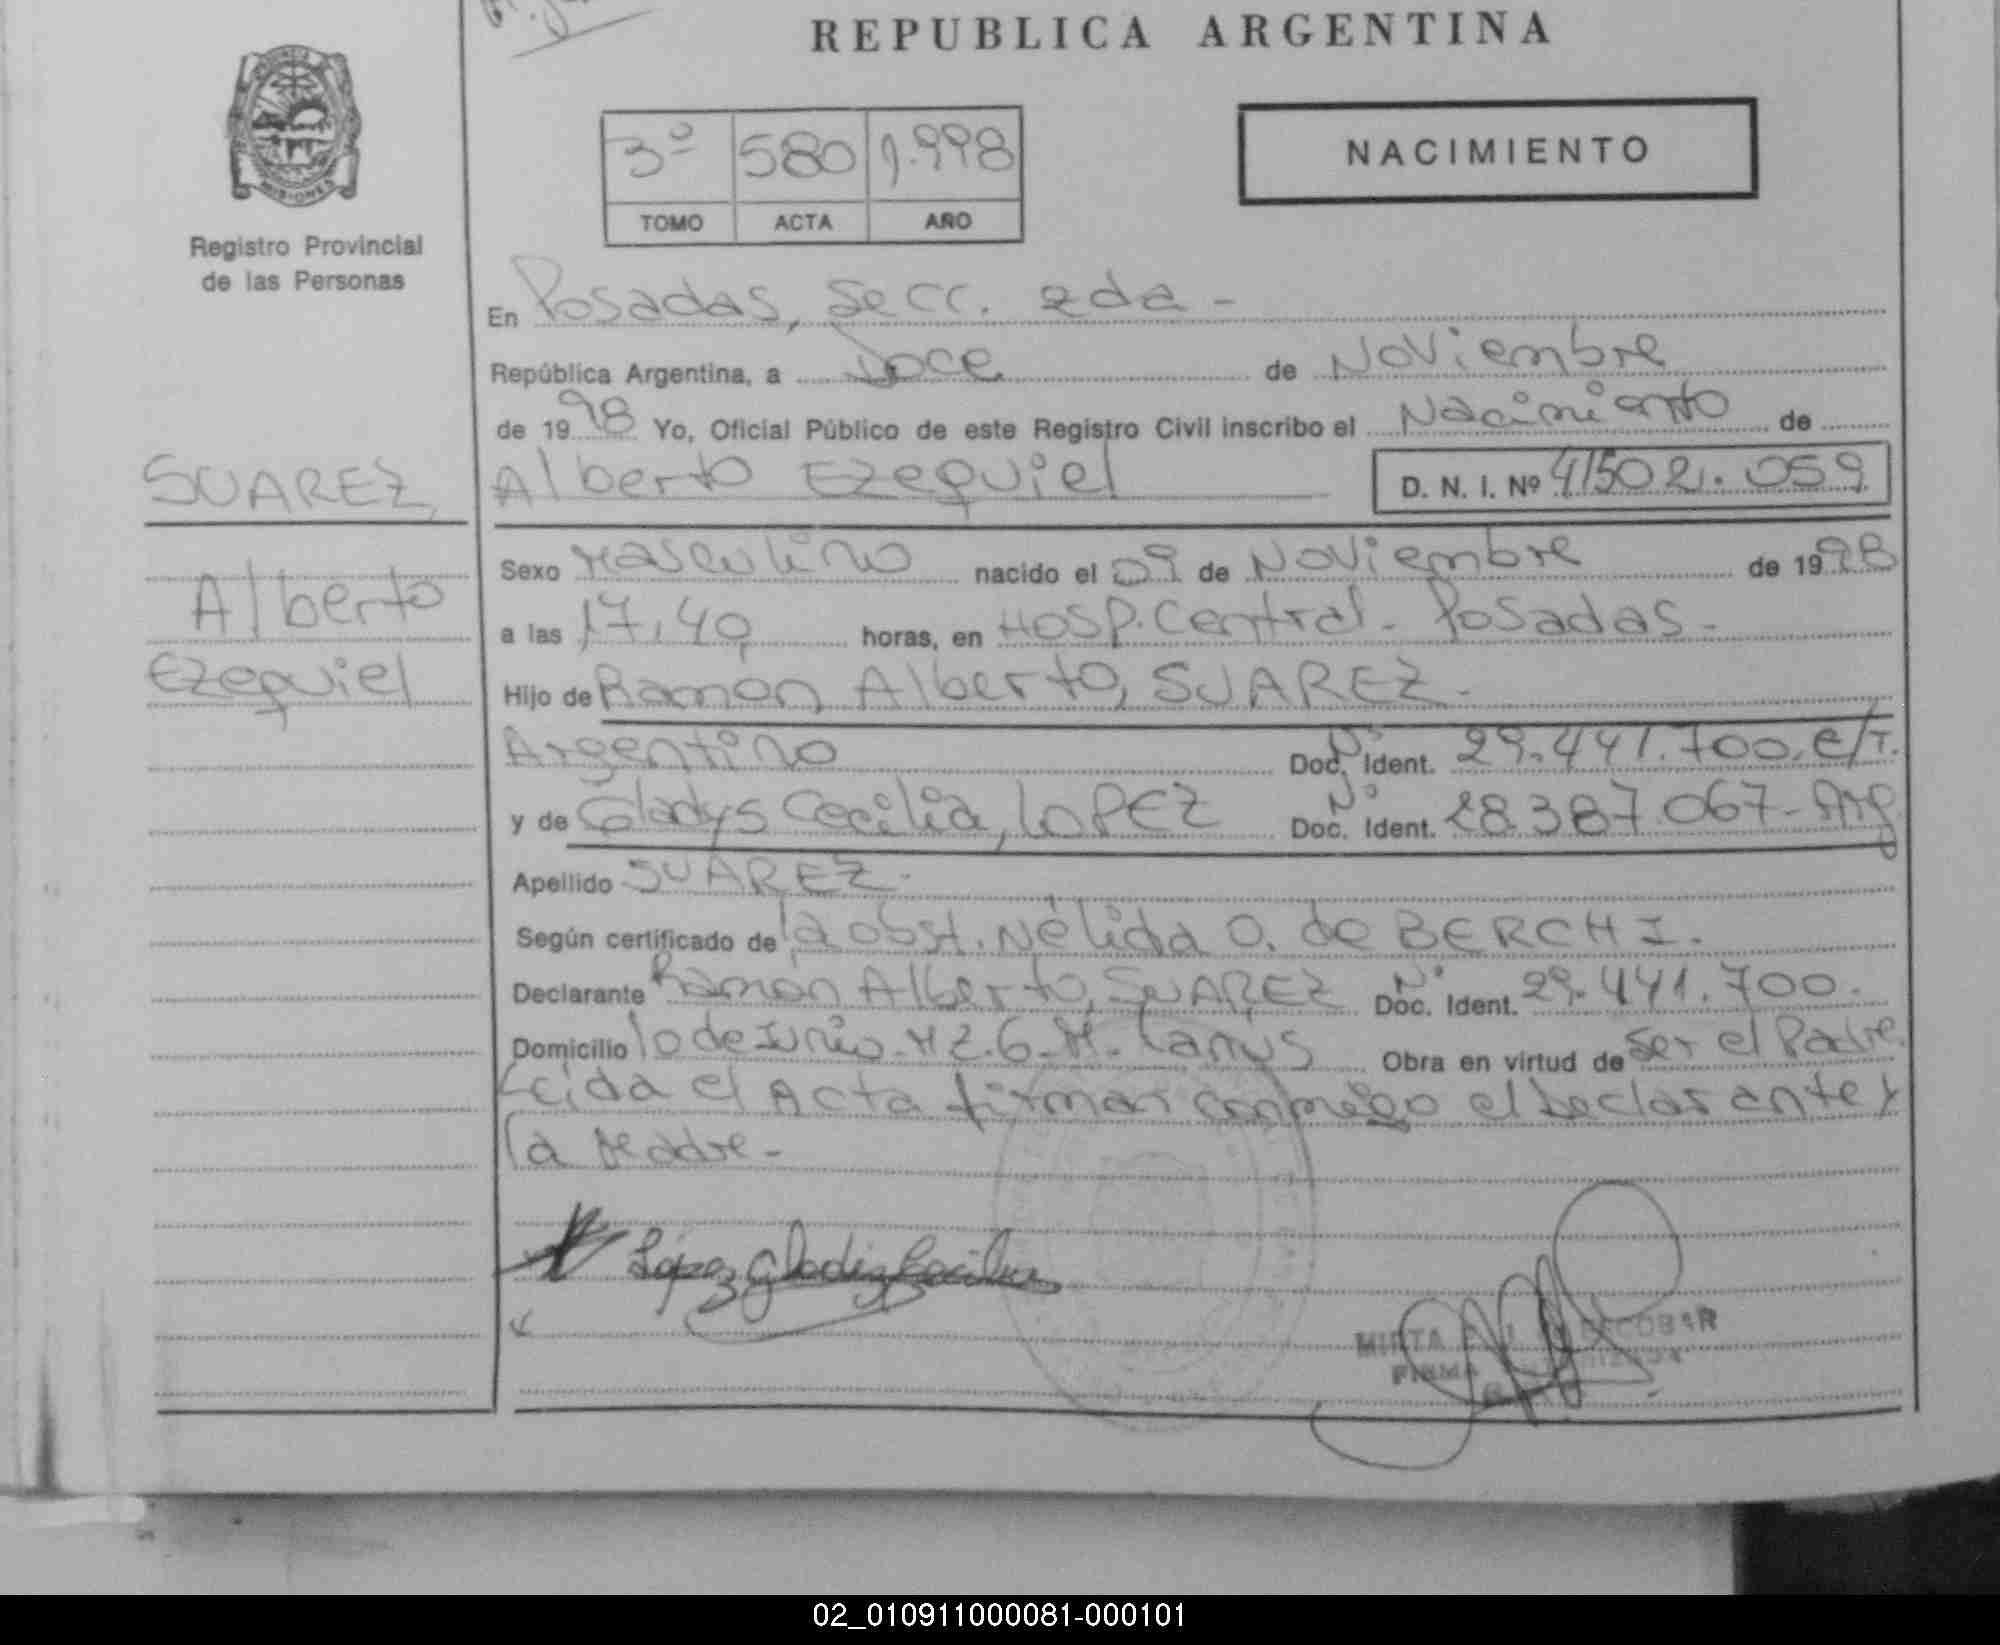 REPUBLICA ARGENTINA
MISIONES
Registro Provincial
de las Personas
3º 580 1.998
TOMO ACTA AÑO
NACIMIENTO
En Posadas, Secc. 2da -
República Argentina, a Doce de Noviembre
de 1998 Yo, Oficial Público de este Registro Civil inscribo el Nacimiento de
SUAREZ,
Alberto
Ezequiel
Alberto Ezequiel D. N. I. Nº 41502.059
Sexo Masculino nacido el 09 de Noviembre de 1998
a las 17,40 horas, en Hosp. Central - Posadas -
Hijo de Ramón Alberto, SUAREZ -
Argentino Doc. Nº Ident. 29.441.700. e/T.
y de Gladys Cecilia, LOPEZ Doc. Nº Ident. 28.387.067 - Arg
Apellido SUAREZ -
Según certificado de la obst. Nélida O. de BERCHI.
Declarante Ramón Alberto, SUAREZ Doc. Nº Ident. 29.441.700.
Domicilio 10 de Junio - MZ. 6 - M. Lanus Obra en virtud de Ser el Padre.
Leida el Acta firman conmigo el Declarante y
la Madre -
López Gladiz Cecilia
MIRTA ESCOBAR
FIRMA
02_010911000081-000101